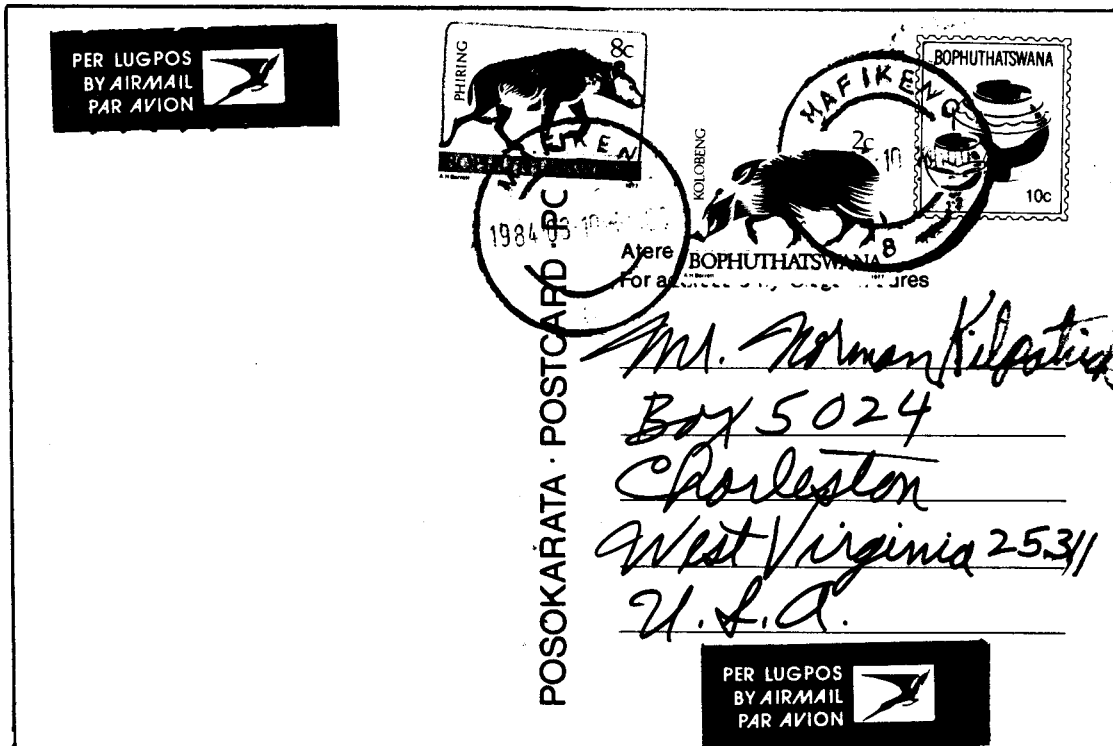 PER LUGPOS
BY AIRMAIL
PAR AVION
PHIRING
8c
BOPHUTHATSWANA
A H Barrett
1977
MAFIKENG
1984 03 10
KOLOBENG
2c
BOPHUTHATSWANA
A H Barrett
1977
MAFIKENG
10
8
BOPHUTHATSWANA
10c
Atere
For
POSOKARATA · POSTCARD · PO
Mr. Norman Kilpatrick
Box 5024
Charleston
West Virginia 25311
U.S.A.
PER LUGPOS
BY AIRMAIL
PAR AVION